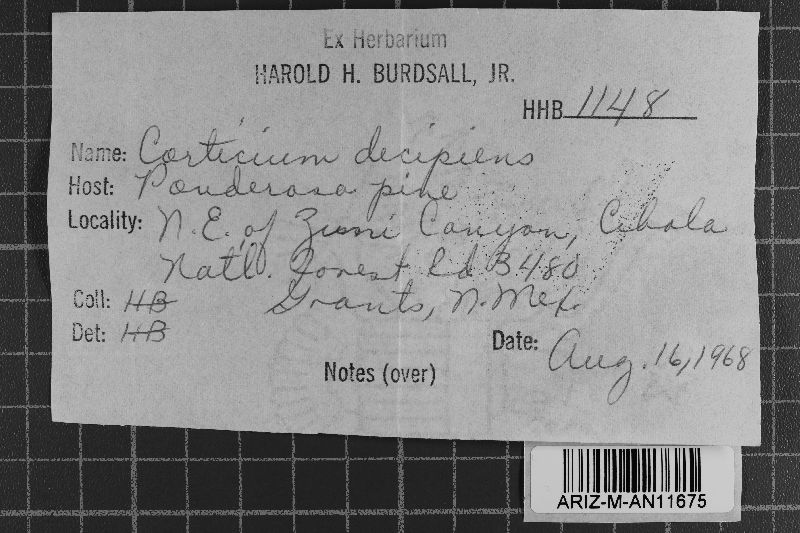 Ex Herbarium
HAROLD H. BURDSALL, JR.
HHB 1148
Name: Corticium decipiens
Host: Ponderosa pine
Locality: N.E. of Zuni Canyon, Cibola
Natl. Forest Rd B480
Coll: HB Grants, N. Mex.
Det: HB
Date: Aug. 16, 1968
Notes (over)
ARIZ-M-AN11675